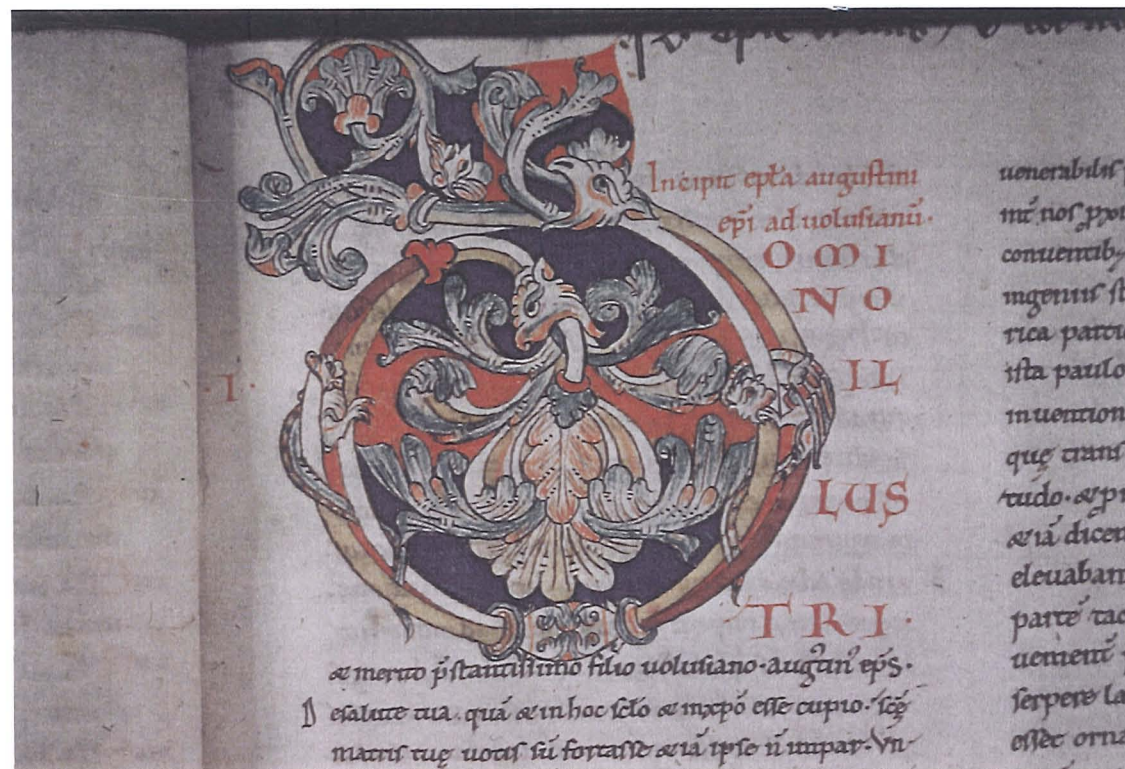 Incipit epła augustini
epī ad uolusianū.
O M I
N O
I L
L U S
T R I .
. I .
& merito p̄stantissimo filio uolusiano. augtin᾽ ep̄s.
D esalute tua. quā & in hoc sclo & in xp̄o esse cupio. scę
matris tuę uotis sū fortasse & iā ipse n̄ impar. Vn-
uenerabilis
int̄ nos
conuentib;
ingeniis
rica
ista paulo
inuention
quę trans
tudo. &
& iā dicen
eleuabam
parte tac
uenient̄
serpere la
esset orna